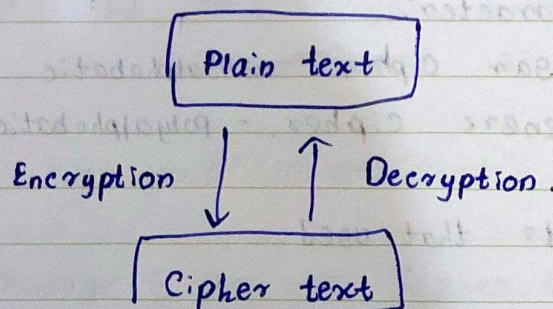 Plain text
Encryption Decryption.
Cipher text